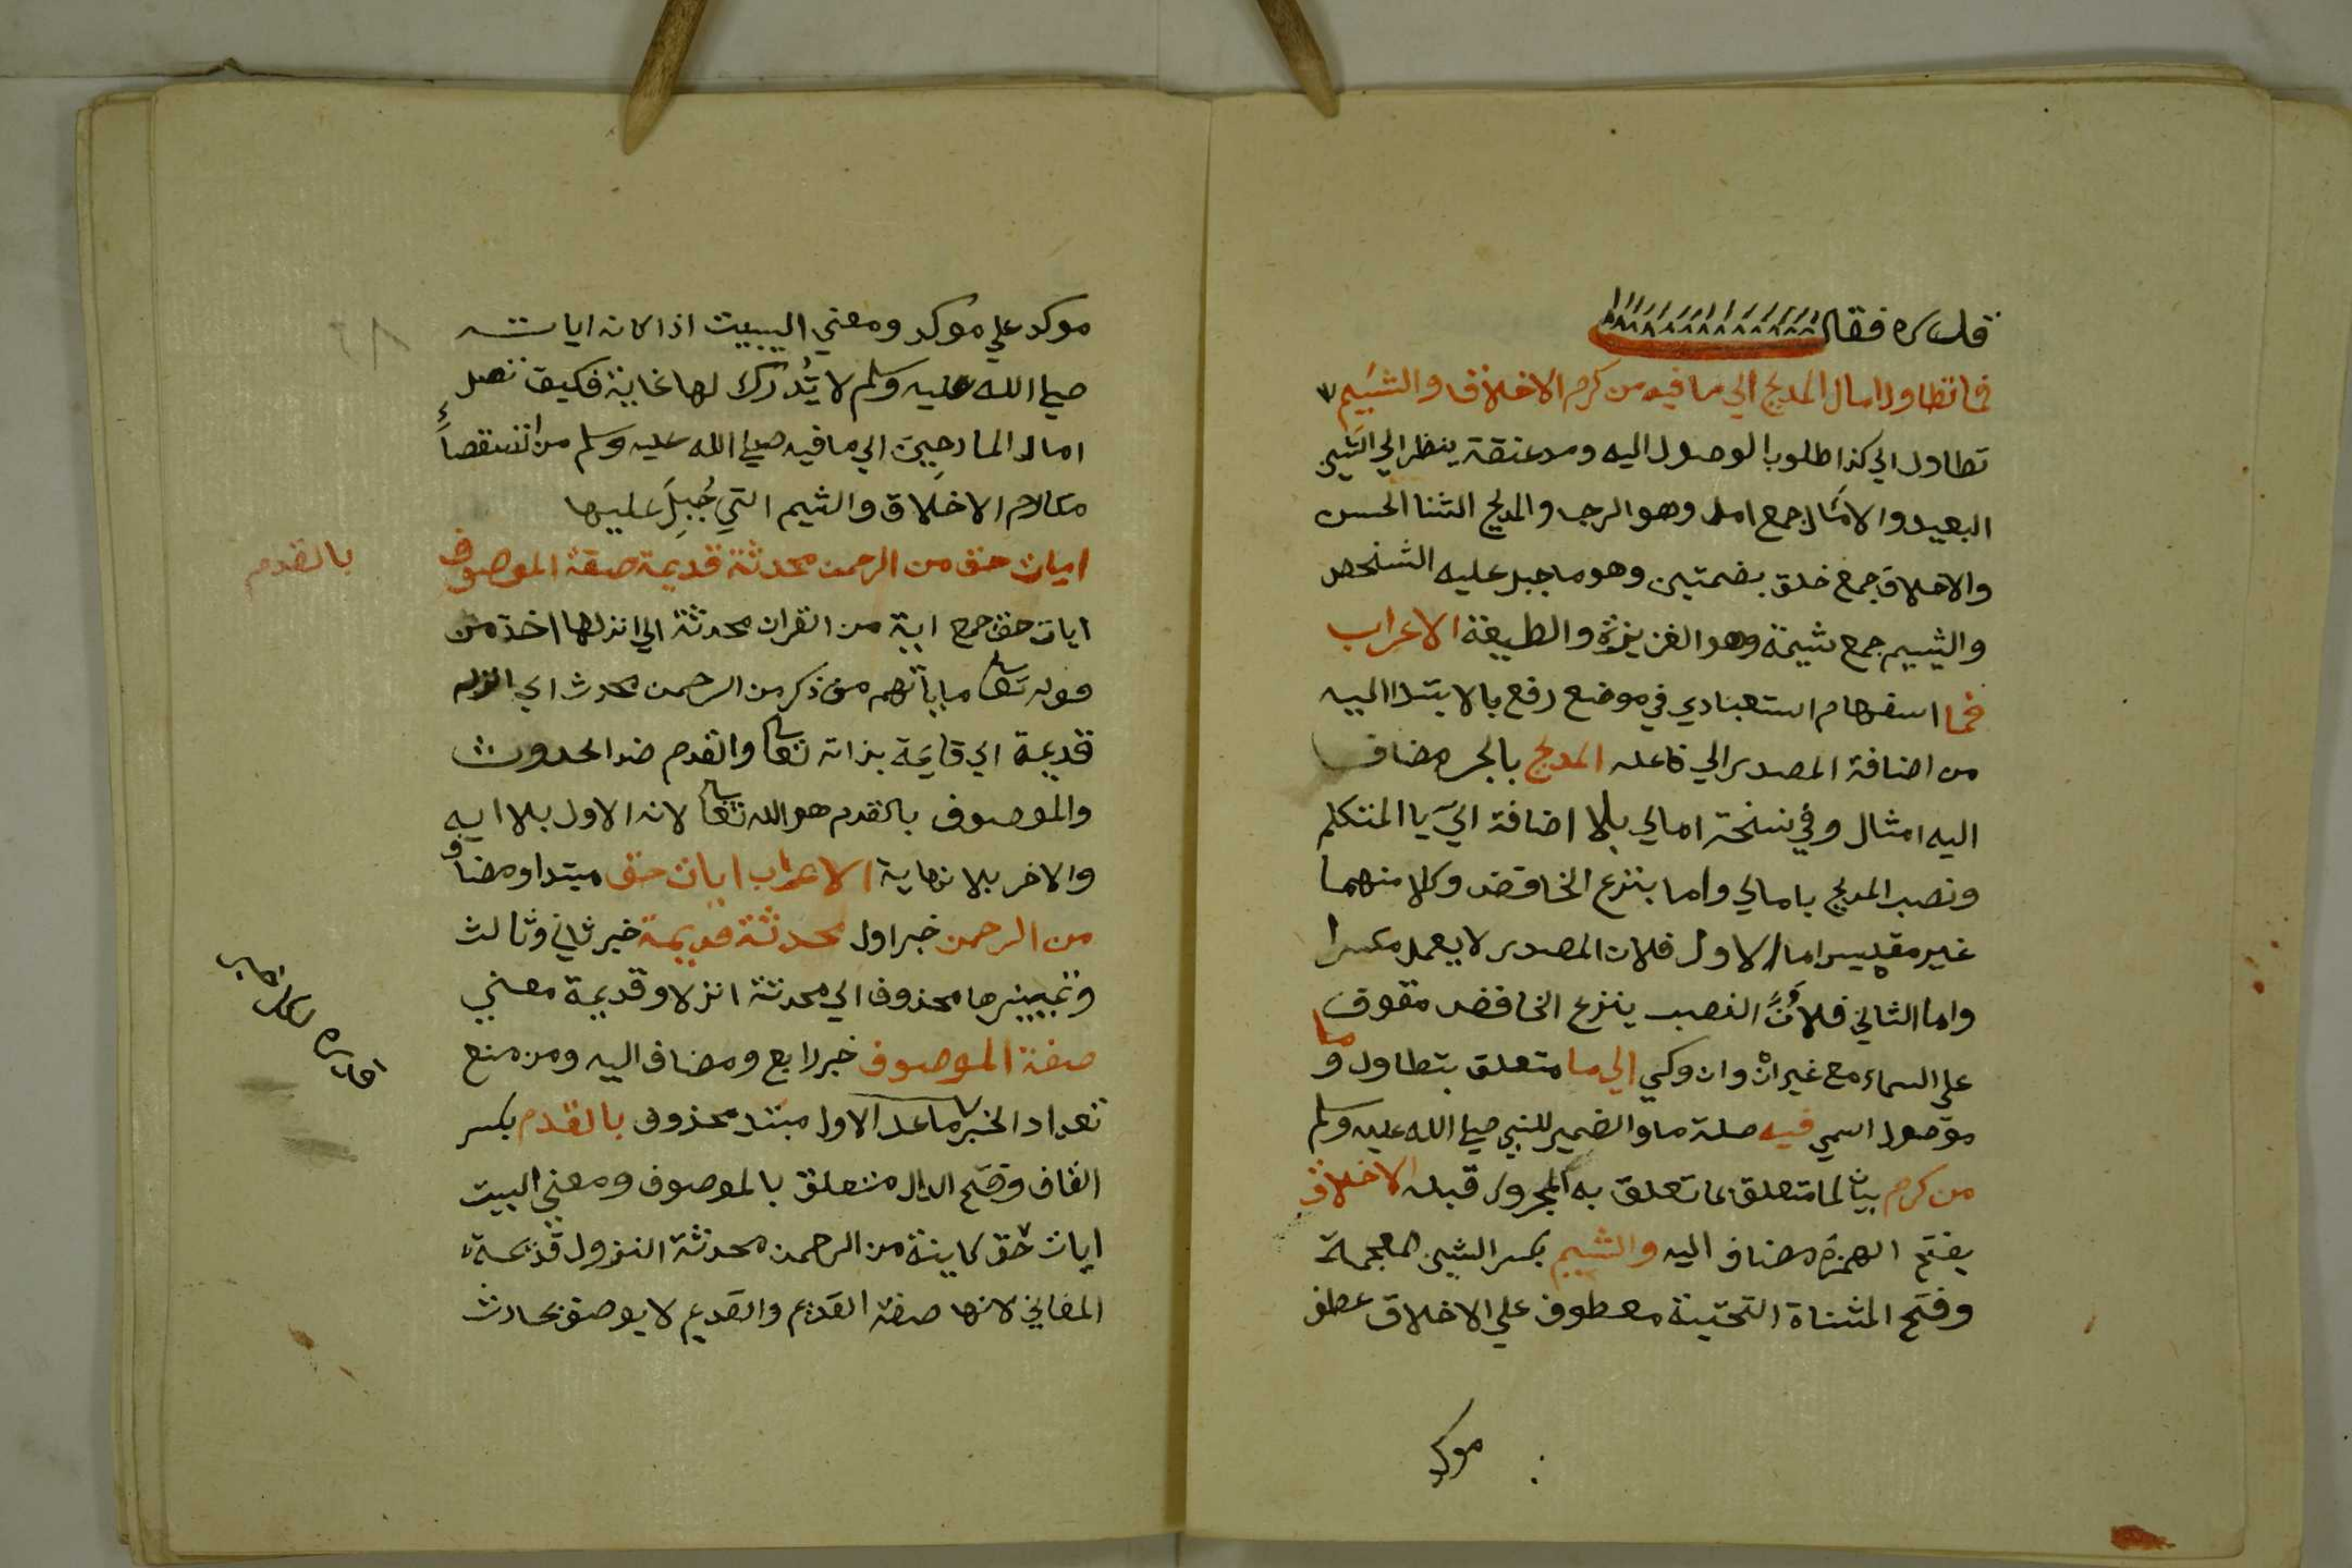 قدره فقال
فما تطاول امال المديح الي ما فيه من كرم الاخلاق والشيم
تطاول الي كذا طلوب الوصول اليه ومد عنقه ينظر الي الشي
البعيد والامال جمع امل وهو الرجا والمديح الثنا الحسن
والاخلاق جمع خلق بضمتين وهو ما جبل عليه الشخص
والشيم جمع شيمة وهو الغريزة والطبيعة الاعراب
فما استفهام استبعادي في موضع رفع بالابتدا اليه
من اضافة المصدر الي فاعله المديح بالجر مضاف
اليه امثال وفي نسخة امالي بلا اضافة الي يا المتكلم
ونصب المديح بامالي واما بنزع الخافض وكلا منهما
غير مقيس اما الاول فلان المصدر لا يعمل مكسرا
واما الثاني فلان النصب بنزع الخافض موقوف
علي السماع مع غير ان وان وكي الي ما متعلق بتطاول وما
موصول اسمي فيه صلة ما والضمير للنبي صلي الله عليه وسلم
من كرم بيان لما متعلق بما تعلق به المجرور قبله الاخلاق
بفتح الهمزة مضاف اليه والشيم بكسر الشين المعجمة
وفتح المثناة التحتية معطوف علي الاخلاق عطف
موكد
موكد علي موكد ومعني البيت اذا كانه ايات
صلي الله عليه وسلم لا يدرك لها غاية فكيف تصل
امال المادحين الي ما فيه صلي الله عليه وسلم من استقصاء
مكارم الاخلاق والشيم التي جبل عليها
ايات حق من الرحمن محدثة قديمة صفة الموصوف بالقدم
ايات حق جمع اية من القران محدثة اي انزلها اخذ من
قوله تعالي ما ياتهم من ذكر من الرحمن محدث اي انزله
قديمة اي قايمة بذاته تعالي والقدم ضد الحدوث
والموصوف بالقدم هو الله تعالي لانه الاول بلا
والاخر بلا نهاية الاعراب ايات حق مبتدا ومضاف
من الرحمن خبر اول محدثة قديمة خبر ثاني وثالث
وتمييزها محذوف اي محدثة انزلا وقديمة معني
صفة الموصوف خبر رابع ومضاف اليه ومن منع
تعداد الخبر ما عدا الاول مبتد محذوف بالقدم بكسر
القاف وفتح الدال متعلق بالموصوف ومعني البيت
ايات حق كاينة من الرحمن محدثة النزول قديمة
المعاني لانها صفة القديم والقديم لا يوصف بحادث